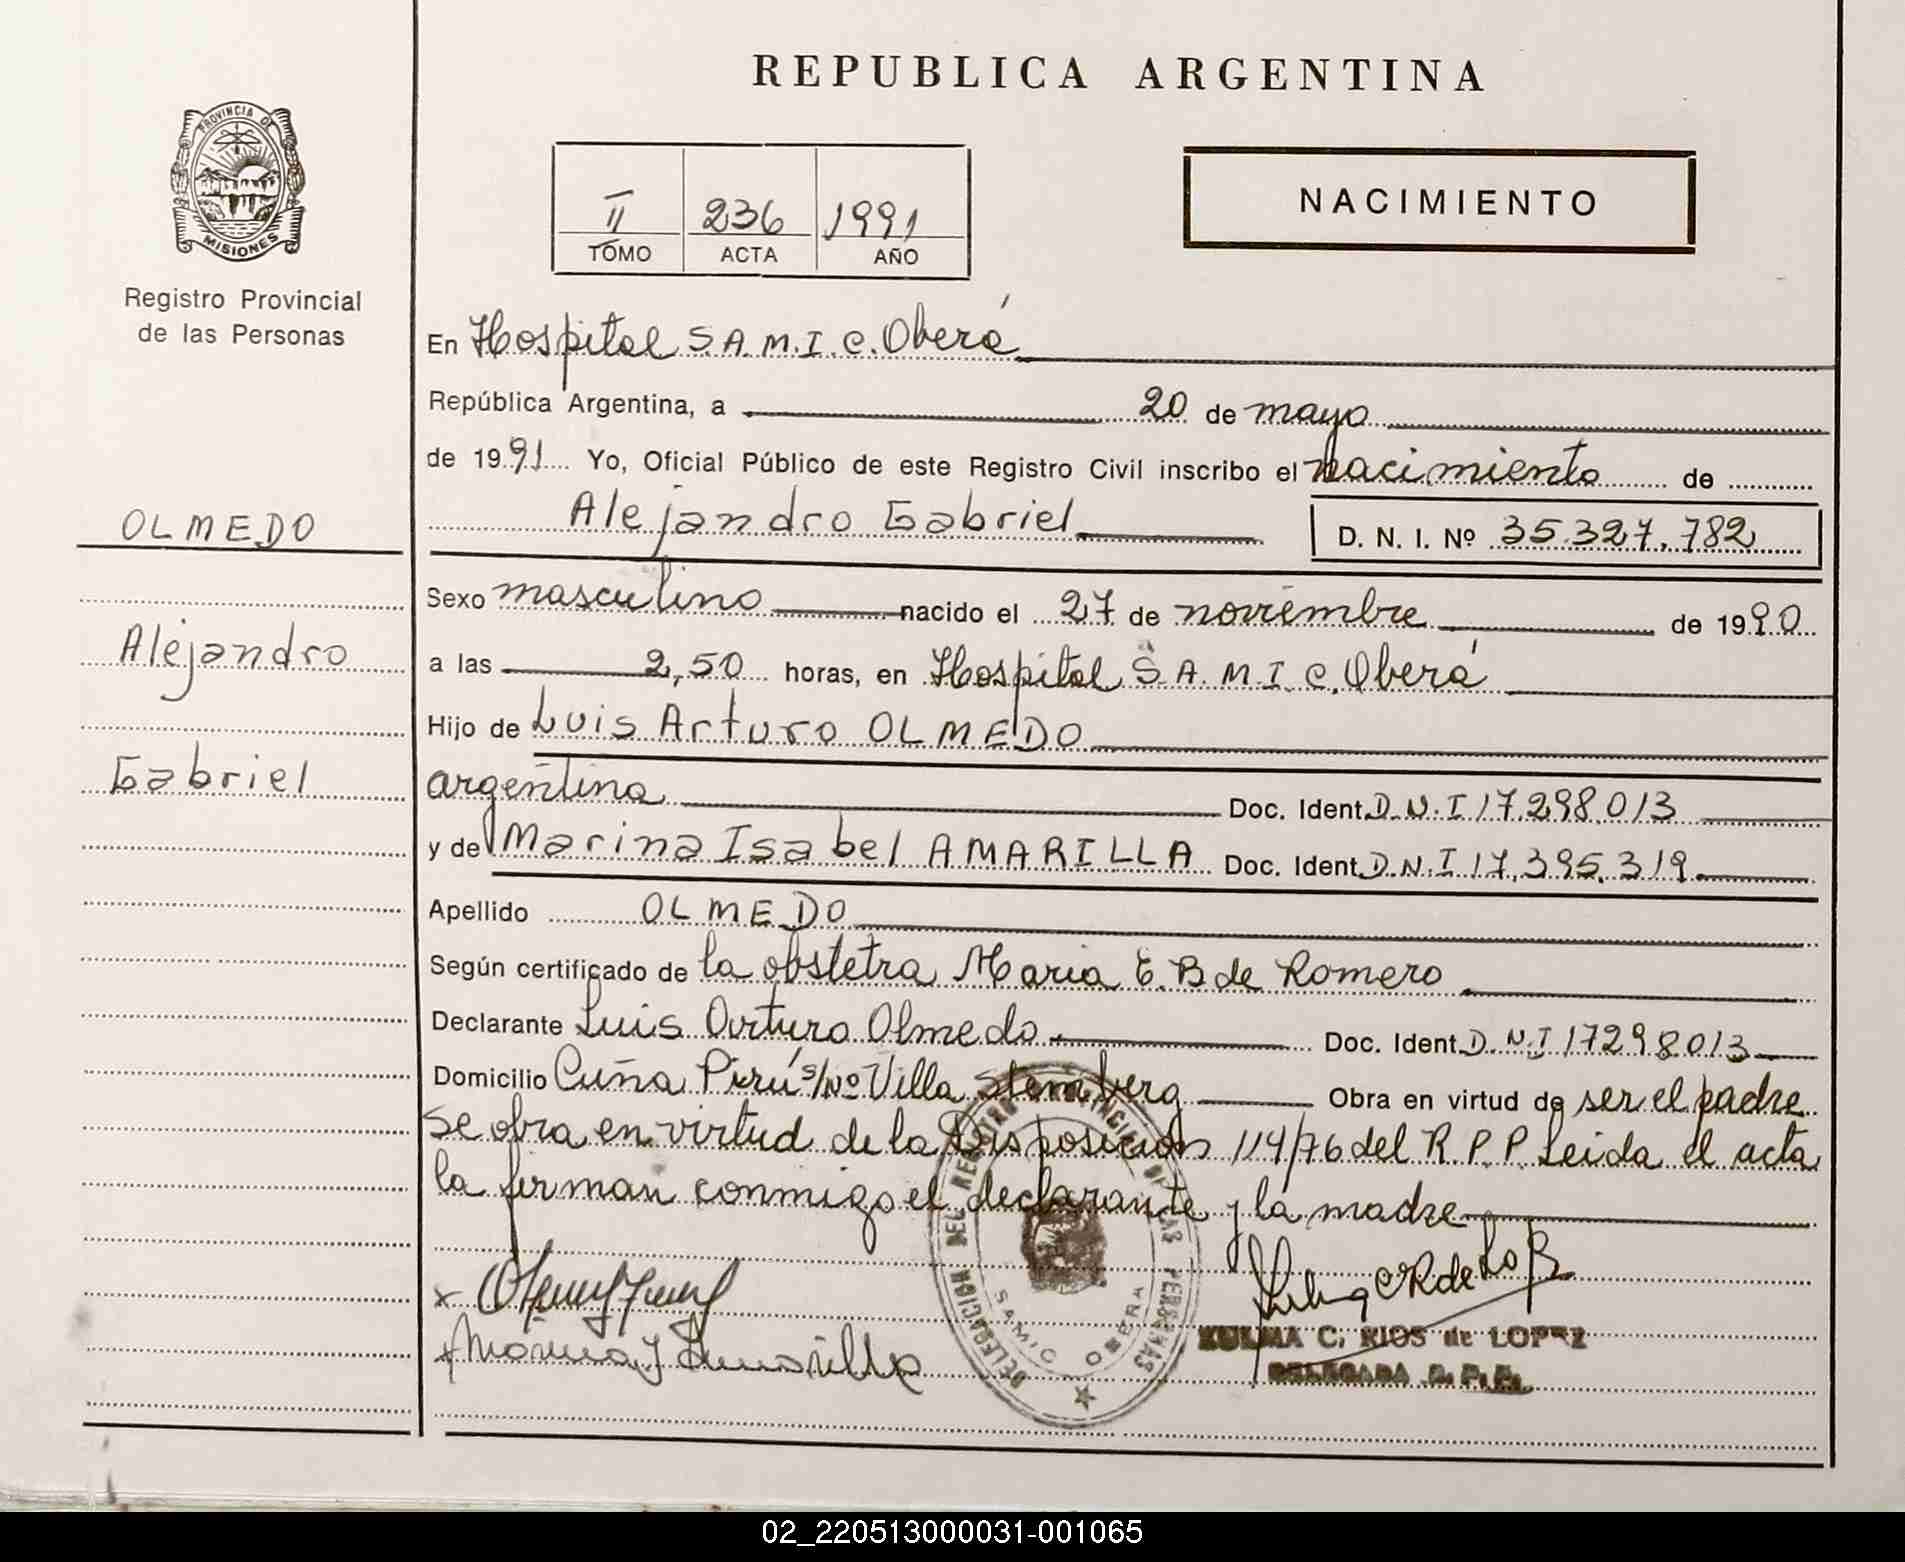 REPUBLICA ARGENTINA
PROVINCIA DE
MISIONES
Registro Provincial
de las Personas
II 236 1991
TOMO ACTA AÑO
NACIMIENTO
En Hospital S.A.M.I.C. Oberá
República Argentina, a 20 de mayo
de 1991 Yo, Oficial Público de este Registro Civil inscribo el nacimiento de
Alejandro Gabriel D. N. I. Nº 35.327.782
OLMEDO
Alejandro
Gabriel
Sexo masculino nacido el 27 de noviembre de 1990
a las 2,50 horas, en Hospital S.A.M.I.C. Oberá
Hijo de Luis Arturo OLMEDO
argentina Doc. Ident. D.N.I 17.298.013
y de Marina Isabel AMARILLA Doc. Ident. D.N.I 17.395.319
Apellido OLMEDO
Según certificado de la obstetra Maria E. B de Romero
Declarante Luis Arturo Olmedo Doc. Ident. D.N.I 17298013
Domicilio Cuña Pirú s/Nº Villa Stemberg Obra en virtud de ser el padre
Se obra en virtud de la Disposición 114/76 del R.P.P. Leida el acta
la firman conmigo el declarante y la madre
x
x Marina I Amarilla
DELEGACION DEL REGISTRO PROVINCIAL DE LAS PERSONAS
SAMIC OBERA
ZULMA C. RIOS de LOPEZ
DELEGADA R. P. P.
02_220513000031-001065